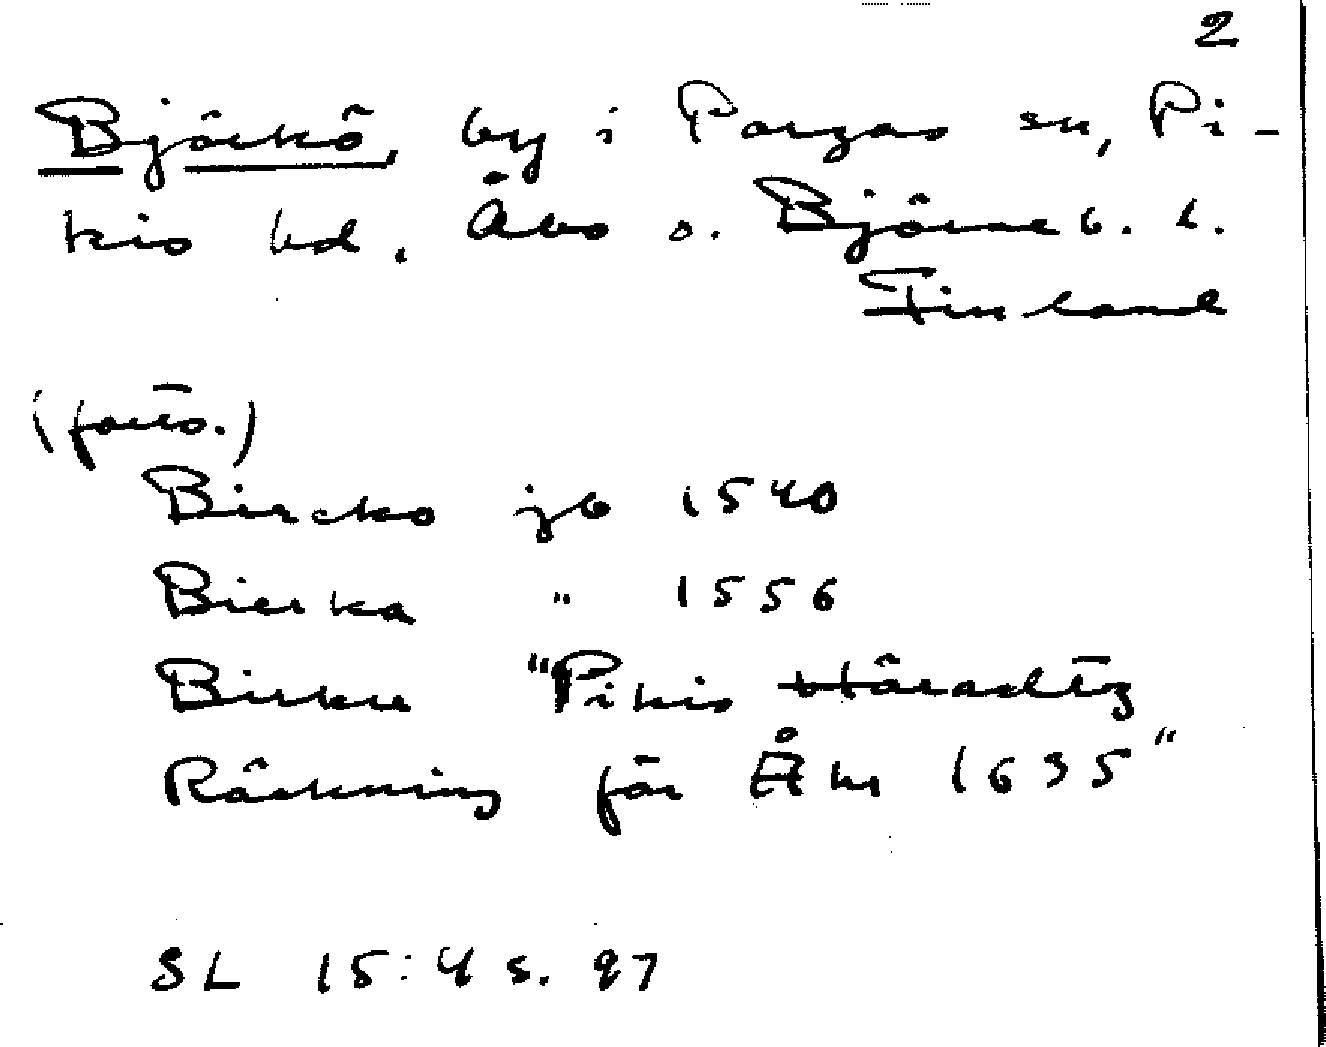 2
Björkö, by i Pargas sn, Pi-
kis hd. Åbo o. Björneb. l.
Finland
(forts.)
Bircko jb 1540
Bierka " 1556
Birku "Pikis Häradtz
Räckning för Åhr 1635"
SL 15:4 s. 97